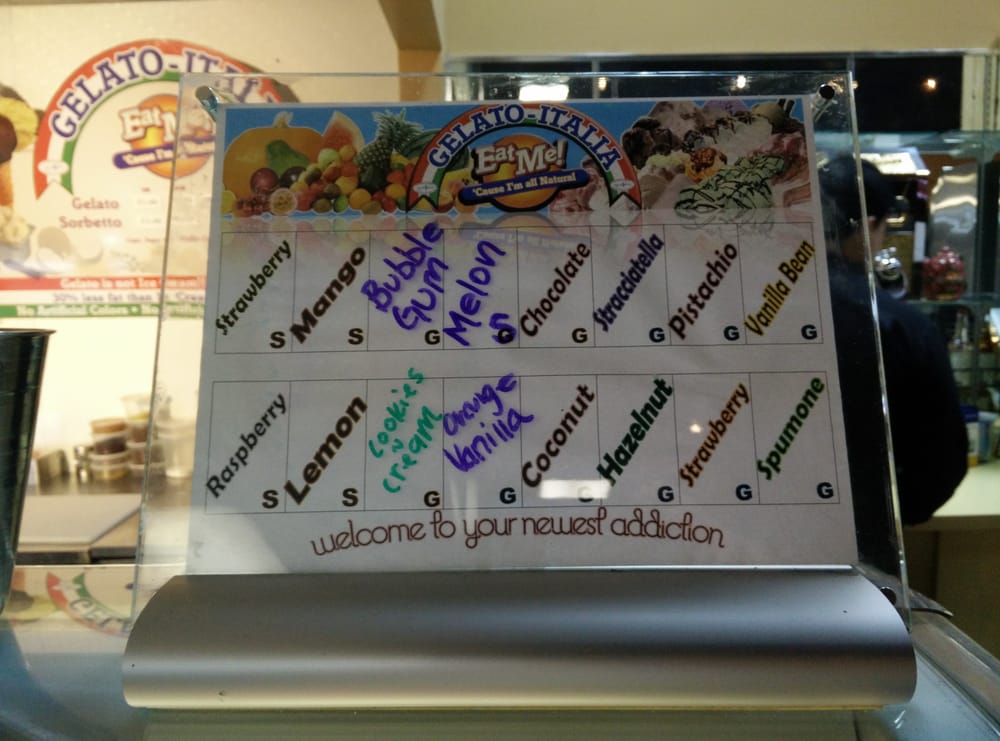 GELATO-ITALIA
Eat Me!
'Cause I'm all Natural
Gelato
Sorbetto
Gelato is not Ice
30% less fat than
No Artificial Colors
GELATO-ITALIA
Eat Me!
'Cause I'm all Natural
Strawberry S
Mango S
Bubble Gum G
Melon S
Chocolate G
Stracciatella G
Pistachio G
Vanilla Bean G
Raspberry S
Lemon S
Cookies n cream G
Orange Vanilla G
Coconut G
Hazelnut G
Strawberry G
Spumone G
welcome to your newest addiction